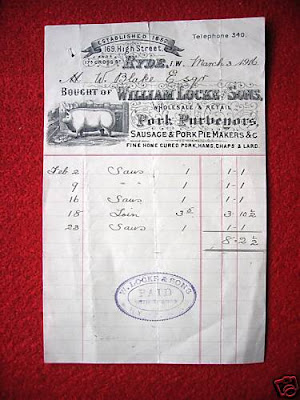 ESTABLISHED 18
169, High Street. Telephone 340.
AND CROSS ST
RYDE, I.W. March 3 19
H. W. Blake Esqr
BOUGHT OF WILLIAM LOCKE & SONS,
WHOLESALE & RETAIL
Pork Purveyors,
SAUSAGE & PORK PIE MAKERS &C
FINE HOME CURED PORK, HAMS, CHAPS & LARD.
Feb 2 Saus 1 1-1
9 " " 1 1-1
16 Saus 1 1-1
18 Loin 3 3-10½
23 Saus 1 1-1
8-2½
W. LOCKE & SONS
PAID